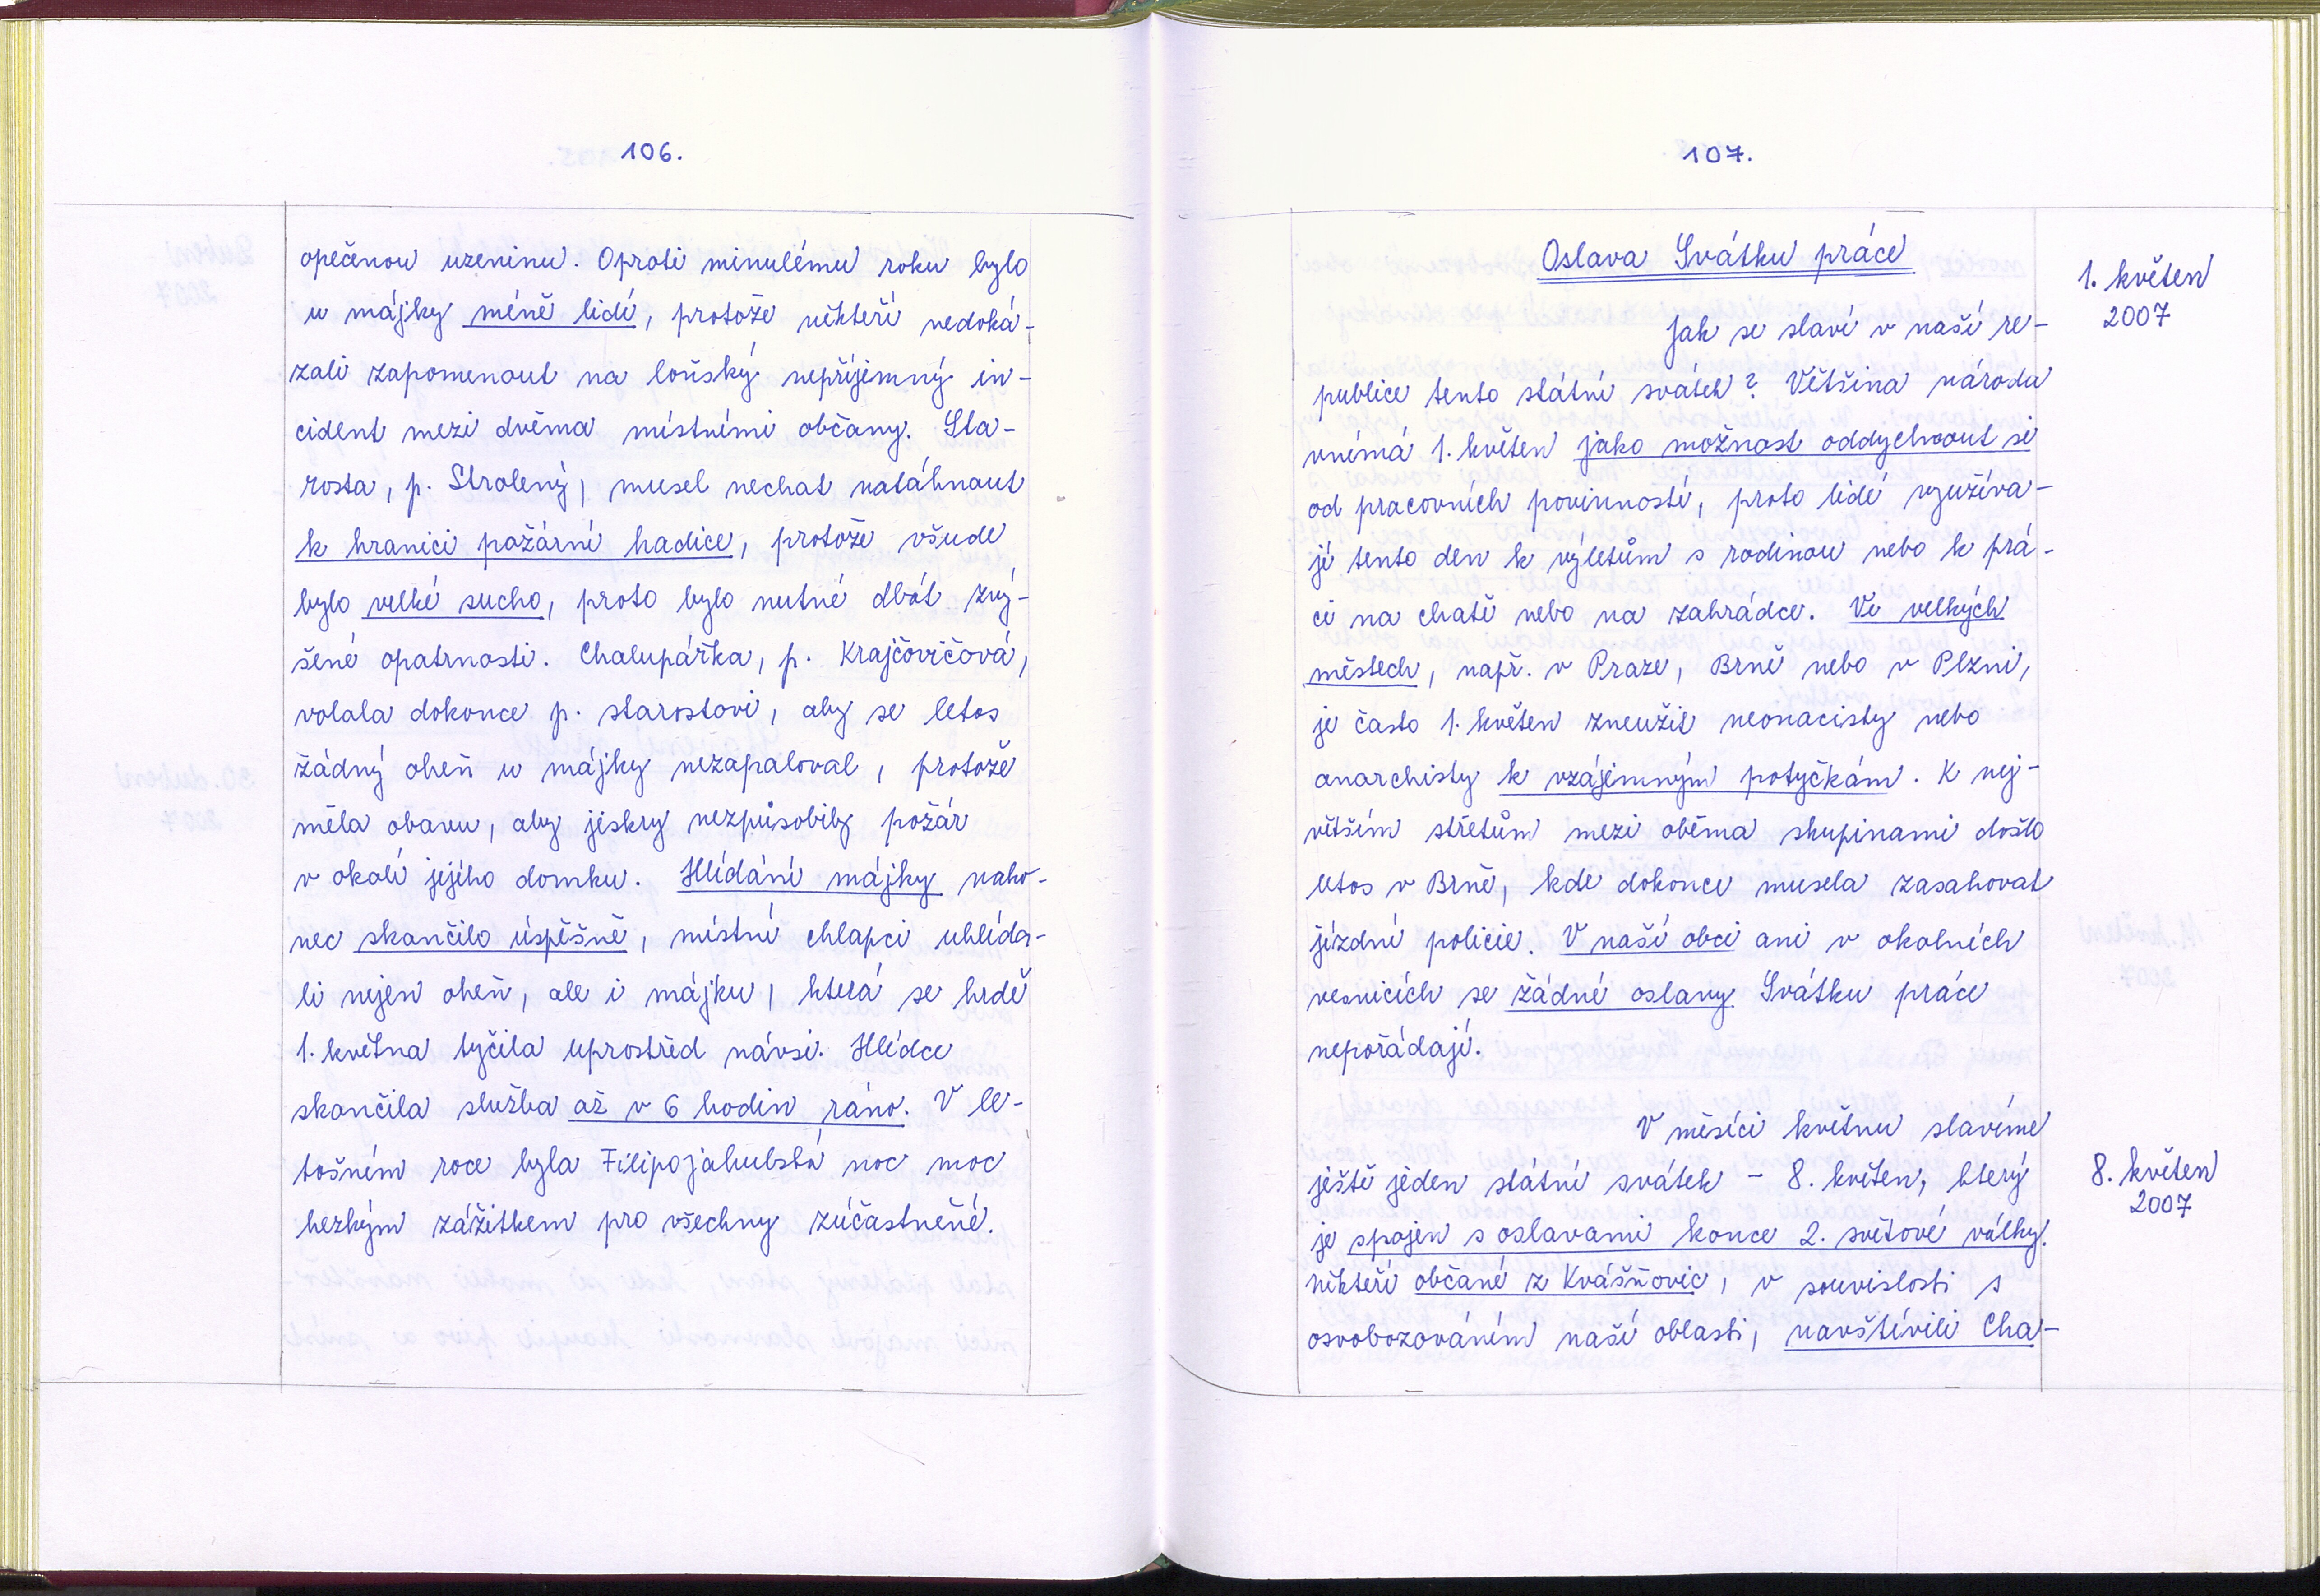 106.
opečenou uzeninu. Oproti minulému roku bylo
u májky méně lidí, protože někteří nedoká-
zali zapomenout na loňský nepříjemný in-
cident mezi dvěma místními občany. Sta-
rosta, p. Strolený, musel nechat natáhnout
k hranici požární hadice, protože všude
bylo velké sucho, proto bylo nutné dbát zvý-
šené opatrnosti. Chalupářka, p. Krajčovičová,
volala dokonce p. starostovi, aby se letos
žádný oheň u májky nezapaloval, protože
měla obavu, aby jiskry nezpůsobily požár
v okolí jejího domku. Hlídání májky nako-
nec skončilo úspěšně, místní chlapci uhlída-
li nejen oheň, ale i májku, která se hrdě
1. května tyčila uprostřed návsi. Hlídce
skončila služba až v 6 hodin ráno. V le-
tošním roce byla Filipojakubská noc moc
hezkým zážitkem pro všechny zúčastněné.
107.
Oslava Svátku práce
1. květen
2007
Jak se slaví v naší re-
publice tento státní svátek? Většina národa
vnímá 1. květen jako možnost oddychnout si
od pracovních povinností, proto lidé využíva-
jí tento den k výletům s rodinou nebo k prá-
ci na chatě nebo na zahrádce. Ve velkých
městech, např. v Praze, Brně nebo v Plzni,
je často 1. květen zneužit neonacisty nebo
anarchisty k vzájemným potyčkám. K nej-
větším střetům mezi oběma skupinami došlo
letos v Brně, kde dokonce musela zasahovat
jízdní policie. V naší obci ani v okolních
vesnicích se žádné oslavy Svátku práce
nepořádají.
V měsíci květnu slavíme
8. květen
2007
ještě jeden státní svátek - 8. květen, který
je spojen s oslavami konce 2. světové války.
Někteří občané z Kvášňovic, v souvislosti s
osvobozováním naší oblasti, navštívili Cha-